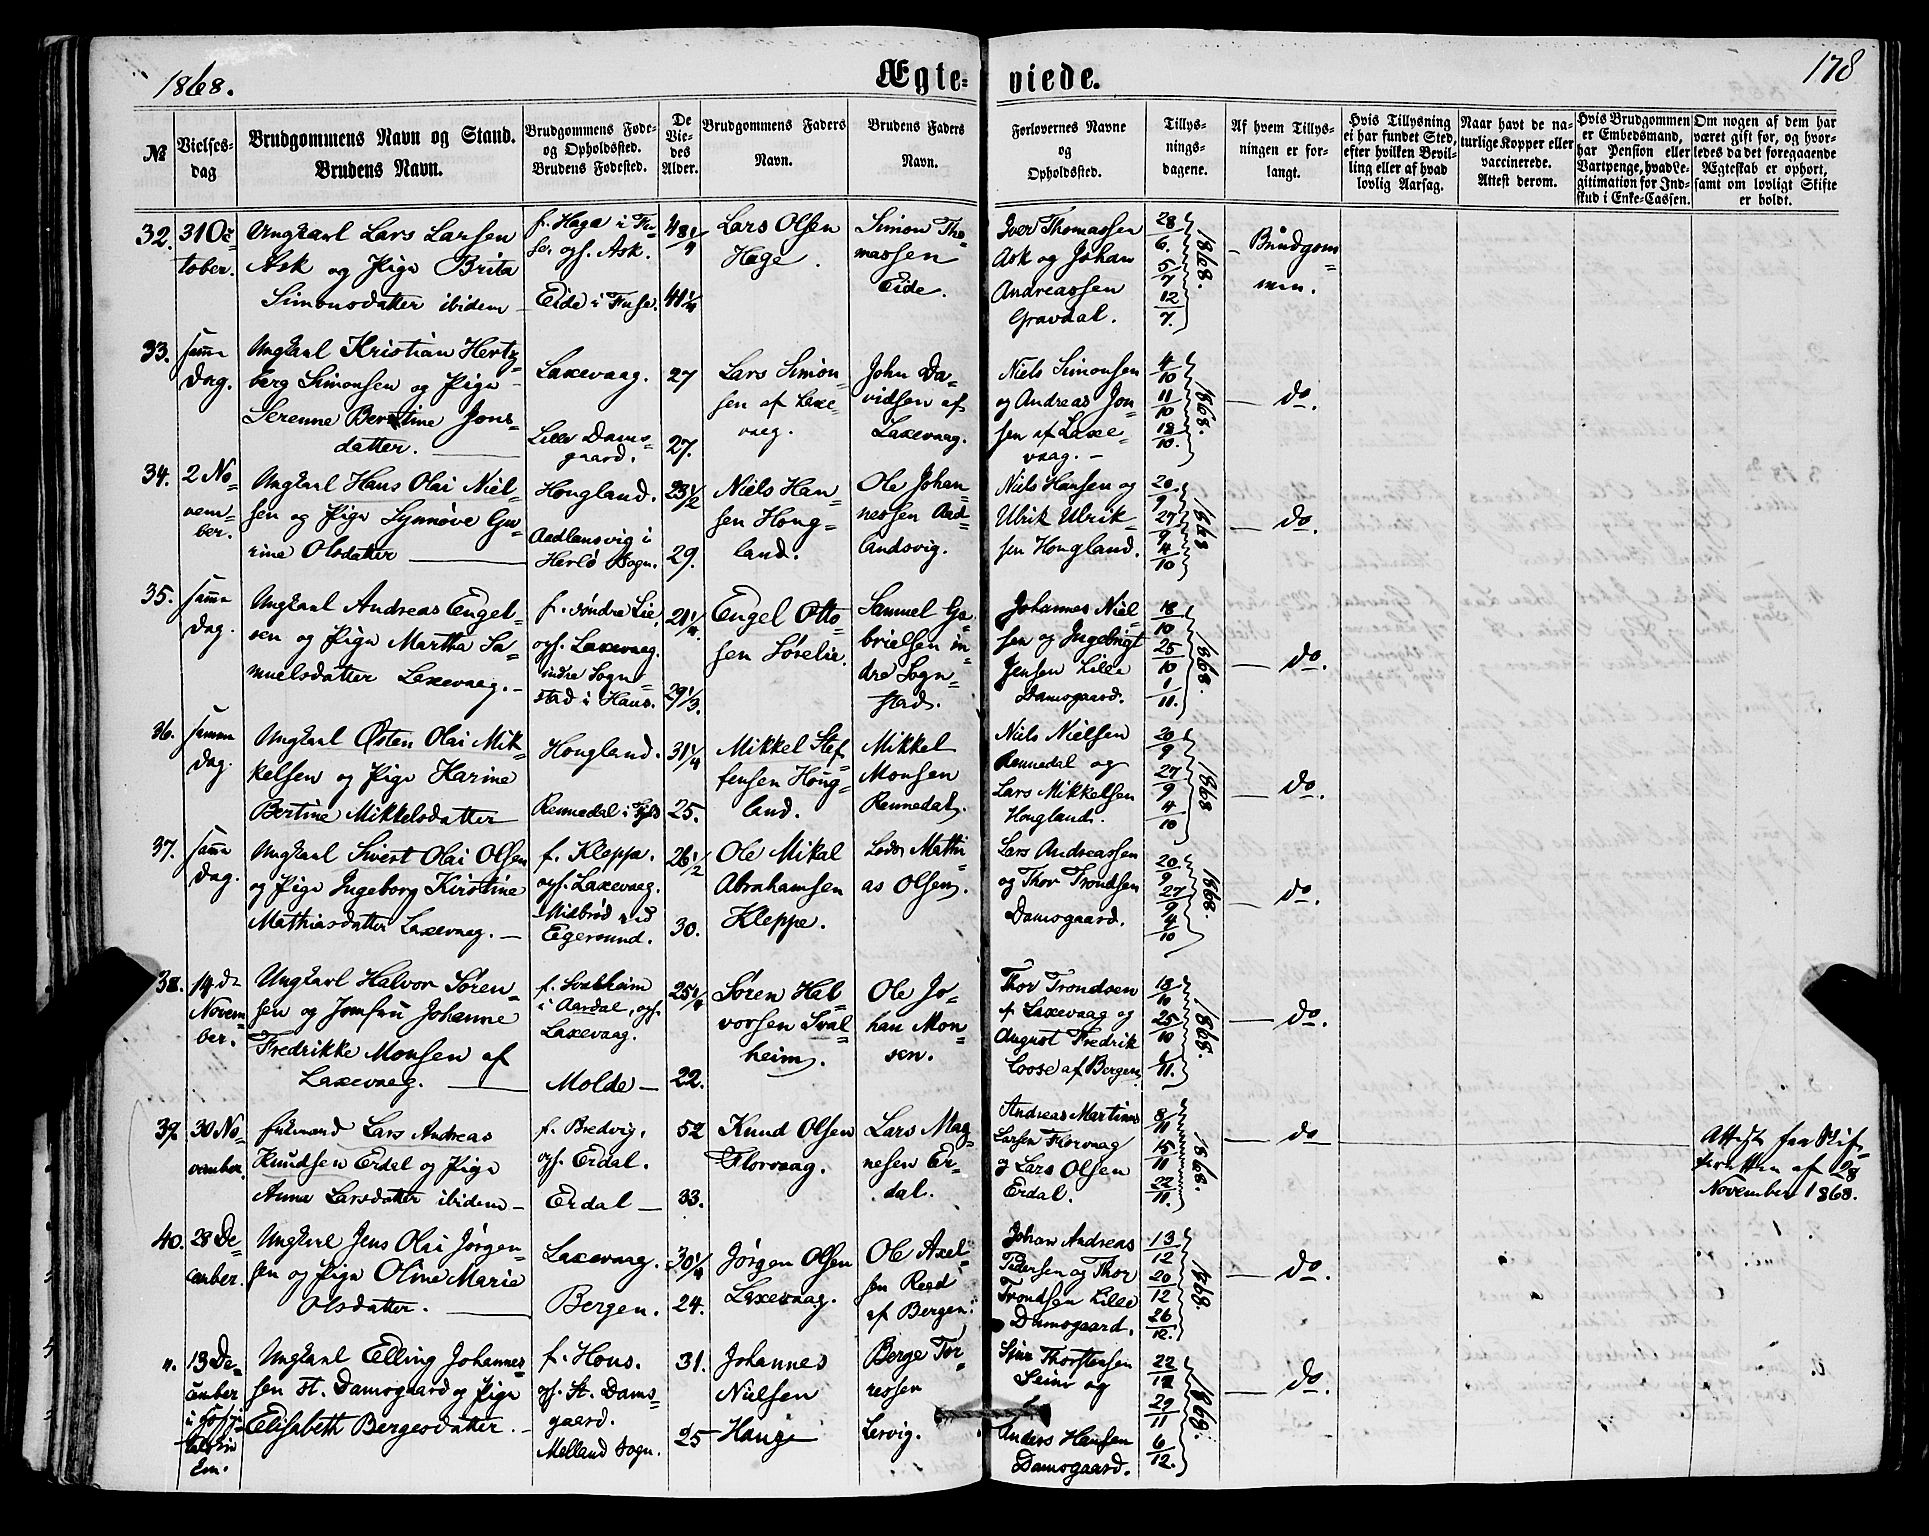 1868.
Ægte-
viede.
178
№
Vielses-
dag
Brudgommens Navn og Stand.
Brudens Navn.
Brudgommens Føde-
og Opholdssted.
Brudens Fødested.
De
Vie-
des
Alder.
Brudgommens Faders
Navn.
Brudens Faders
Navn.
Forlovernes Navne
og
Opholdssted.
Tillys-
nings-
dagene.
Af hvem Tillys-
ningen er for-
langt.
Hvis Tillysning
ei har fundet Sted,
efter hvilken Bevil-
ling eller af hvad
lovlig Aarsag.
Naar havt de na-
turlige Kopper eller
vaccinerede.
Attest derom.
Hvis Brudgommen
er Embedsmand,
har Pension eller
Vartpenge, hvad Le-
gitimation for Ind-
skud i Enke-Cassen.
Om nogen af dem har
været gift før, og hvor-
ledes da det foregaaende
Ægteskab er ophørt,
samt om lovligt Skifte
er holdt.
32.
31 Oc
tober.
Ungkarl Lars Larsen
Ask og Pige Brita
Simonsdatter ibidem
f. Hage i Fu-
se, oph. Ask.
Eide i Fuse.
48 1/4
41 1/4
Lars Olsen
Hage.
Simon Tho-
massen
Eide.
Iver Thomassen
Ask og Johan
Andreassen
Gravdal.
28/6.
5/7
12/7.
1868.
Brudgom-
men.
33.
samme
Dag.
Ungkarl Kristian Hertz-
berg Simonsen og Pige
Serenne Berntine Jons-
datter.
Laxevaag.
Lille Dams-
gaard.
27
27.
Lars Simon-
sen af Laxe-
vaag.
John Da-
vidsen af
Laxevaag.
Niels Simonsen
og Andreas Jon-
sen af Laxe-
vaag.
4/10
11/10
18/10.
1868.
do.
34.
2 No-
vem-
ber.
Ungkarl Hans Olai Niel-
sen og Pige Synnøve Gu-
rine Olsdatter
Hougland.
Aadlansvig i
Herlø Sogn.
23 1/2
29.
Niels Han-
sen Houg-
land.
Ole Johan-
nessen Aad-
landsvig.
Niels Hansen og
Ulrik Ulrik-
sen Hougland.
20/9
27/9
4/10
1868
do.
35.
samme
Dag.
Ungkarl Andreas Engel-
sen og Pige Martha Sa-
muelsdatter Laxevaag.
f. søndre Lie,
oph. Laxevaag.
indre Sogn-
stad i Haus.
21 1/4.
29 1/3.
Engel Otto-
sen Sørelie.
Samuel Ga-
brielsen in-
dre Sogn-
stad.
Johannes Niel-
sen og Ingebrigt
Jensen Lille
Damsgaard.
18/10
25/10
1/11.
1868.
do.
36.
samme
Dag.
Ungkarl Østen Olai Mik-
kelsen og Pige Karine
Bertine Mikkelsdatter
Hougland.
31 1/4
25.
Mikkel Stef-
fensen Houg-
land.
Mikkel
Monsen
Rennedal.
Niels Nielsen
Rennedal og
Lars Mikkelsen
Hougland.
20/9
27/9
4/10
1868
do.
37.
samme
Dag.
Ungkarl Sivert Olai Olsen
og Pige Ingeborg Kirstine
Mathiasdatter Laxevaag.
f. Kleppe.
oph. Laxevaag.
Midbrød ved
Egersund.
26 1/2
30.
Ole Mikal
Abrahamsen
Kleppe.
Mathi-
as Olsen.
Lars Andreassen
og Thor Trondsen
Damsgaard.
20/9
27/9
4/10
1868.
do.
38.
14 de
Novem-
ber.
Ungkarl Halvor Søren-
sen og Jomfru Johanne
Fredrikke Monsen af
Laxevaag.
f. Svalheim
i Aardal, oph.
Laxevaag.
Molde
25 1/4
22.
Søren Hal-
vorsen Sval-
heim.
Ole Jo-
han Mon-
sen.
Thor Trondsen
af Laxevaag og
August Fredrik
Loose af Bergen.
18/10
25/10
1/11.
1868.
do.
39.
30 No-
vember.
Enkemand Lars Andreas
Knudsen Erdal og Pige
Anna Larsdatter ibidem
f. Bredvig,
oph. Erdal.
Erdal
52
33.
Knud Olsen
Florvaag.
Lars Mag-
nesen Er-
dal.
Andreas Martinus
Larsen Florvaag
og Lars Olsen
Erdal.
8/11
15/11
22/11.
1868.
do
Attest fra Skif-
teretten af 28
November 1868.
40.
28 De-
cember.
Ungkarl Jens Olai Jørgen-
sen og Pige Oline Marie
Olsdatter.
Laxevaag.
Bergen.
30 1/4
24.
Jørgen Olsen
Laxevaag.
Ole Axel-
sen Reed
af Bergen.
Johan Andreas
Pedersen og Thor
Trondsen Lille
Damsgaard.
13/12
20/12
26/12.
1868.
do.
13 De-
cember
Ungkarl Elling Johannes-
sen St. Damsgaard og Pige
Elisabeth Bergesdatter.
f. Hous.
oph. St. Dams-
gaard.
Melland Sogn.
31.
25
Johannes
Nielsen
Hauge
Berge Tor-
ressen
Lervig.
Thorstensen
og
Anders Hansen
Damsgaard.
29/11
6/12.
1868.
do.